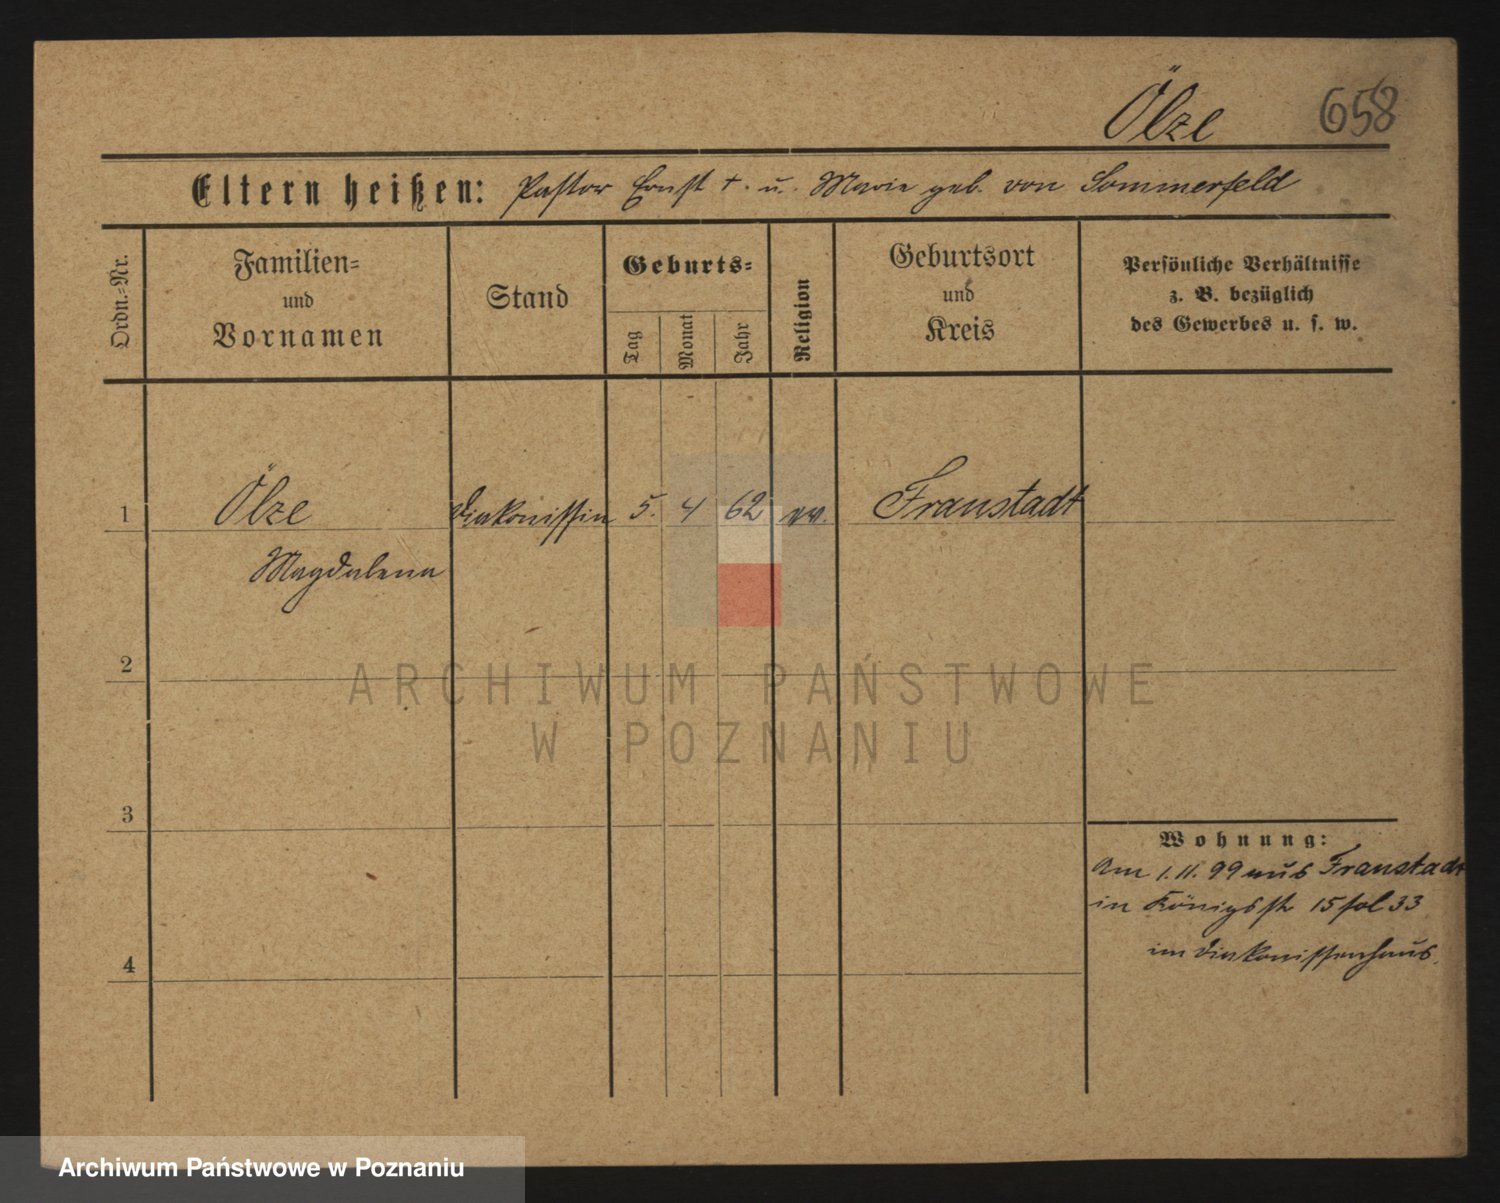 Ölze 658
Eltern heißen: Pastor Ernst †. u. Marie geb. von Sommerfeld
Ordn.-Nr.
Familien-
und
Vornamen
Stand
Geburts-
Tag
Monat
Jahr
Religion
Geburtsort
und
Kreis
Persönliche Verhältnisse
z. B. bezüglich
des Gewerbes u. s. w.
1 Ölze Diakonissin 5. 4 62 ev. Fraustadt
Magdalena
2
ARCHIWUM PAŃSTWOWE
W POZNANIU
3
Wohnung:
Am 1.11.99 aus Fraustadt
in Königsstr 15 fol 33
im Diakonissenhaus.
4
Archiwum Państwowe w Poznaniu